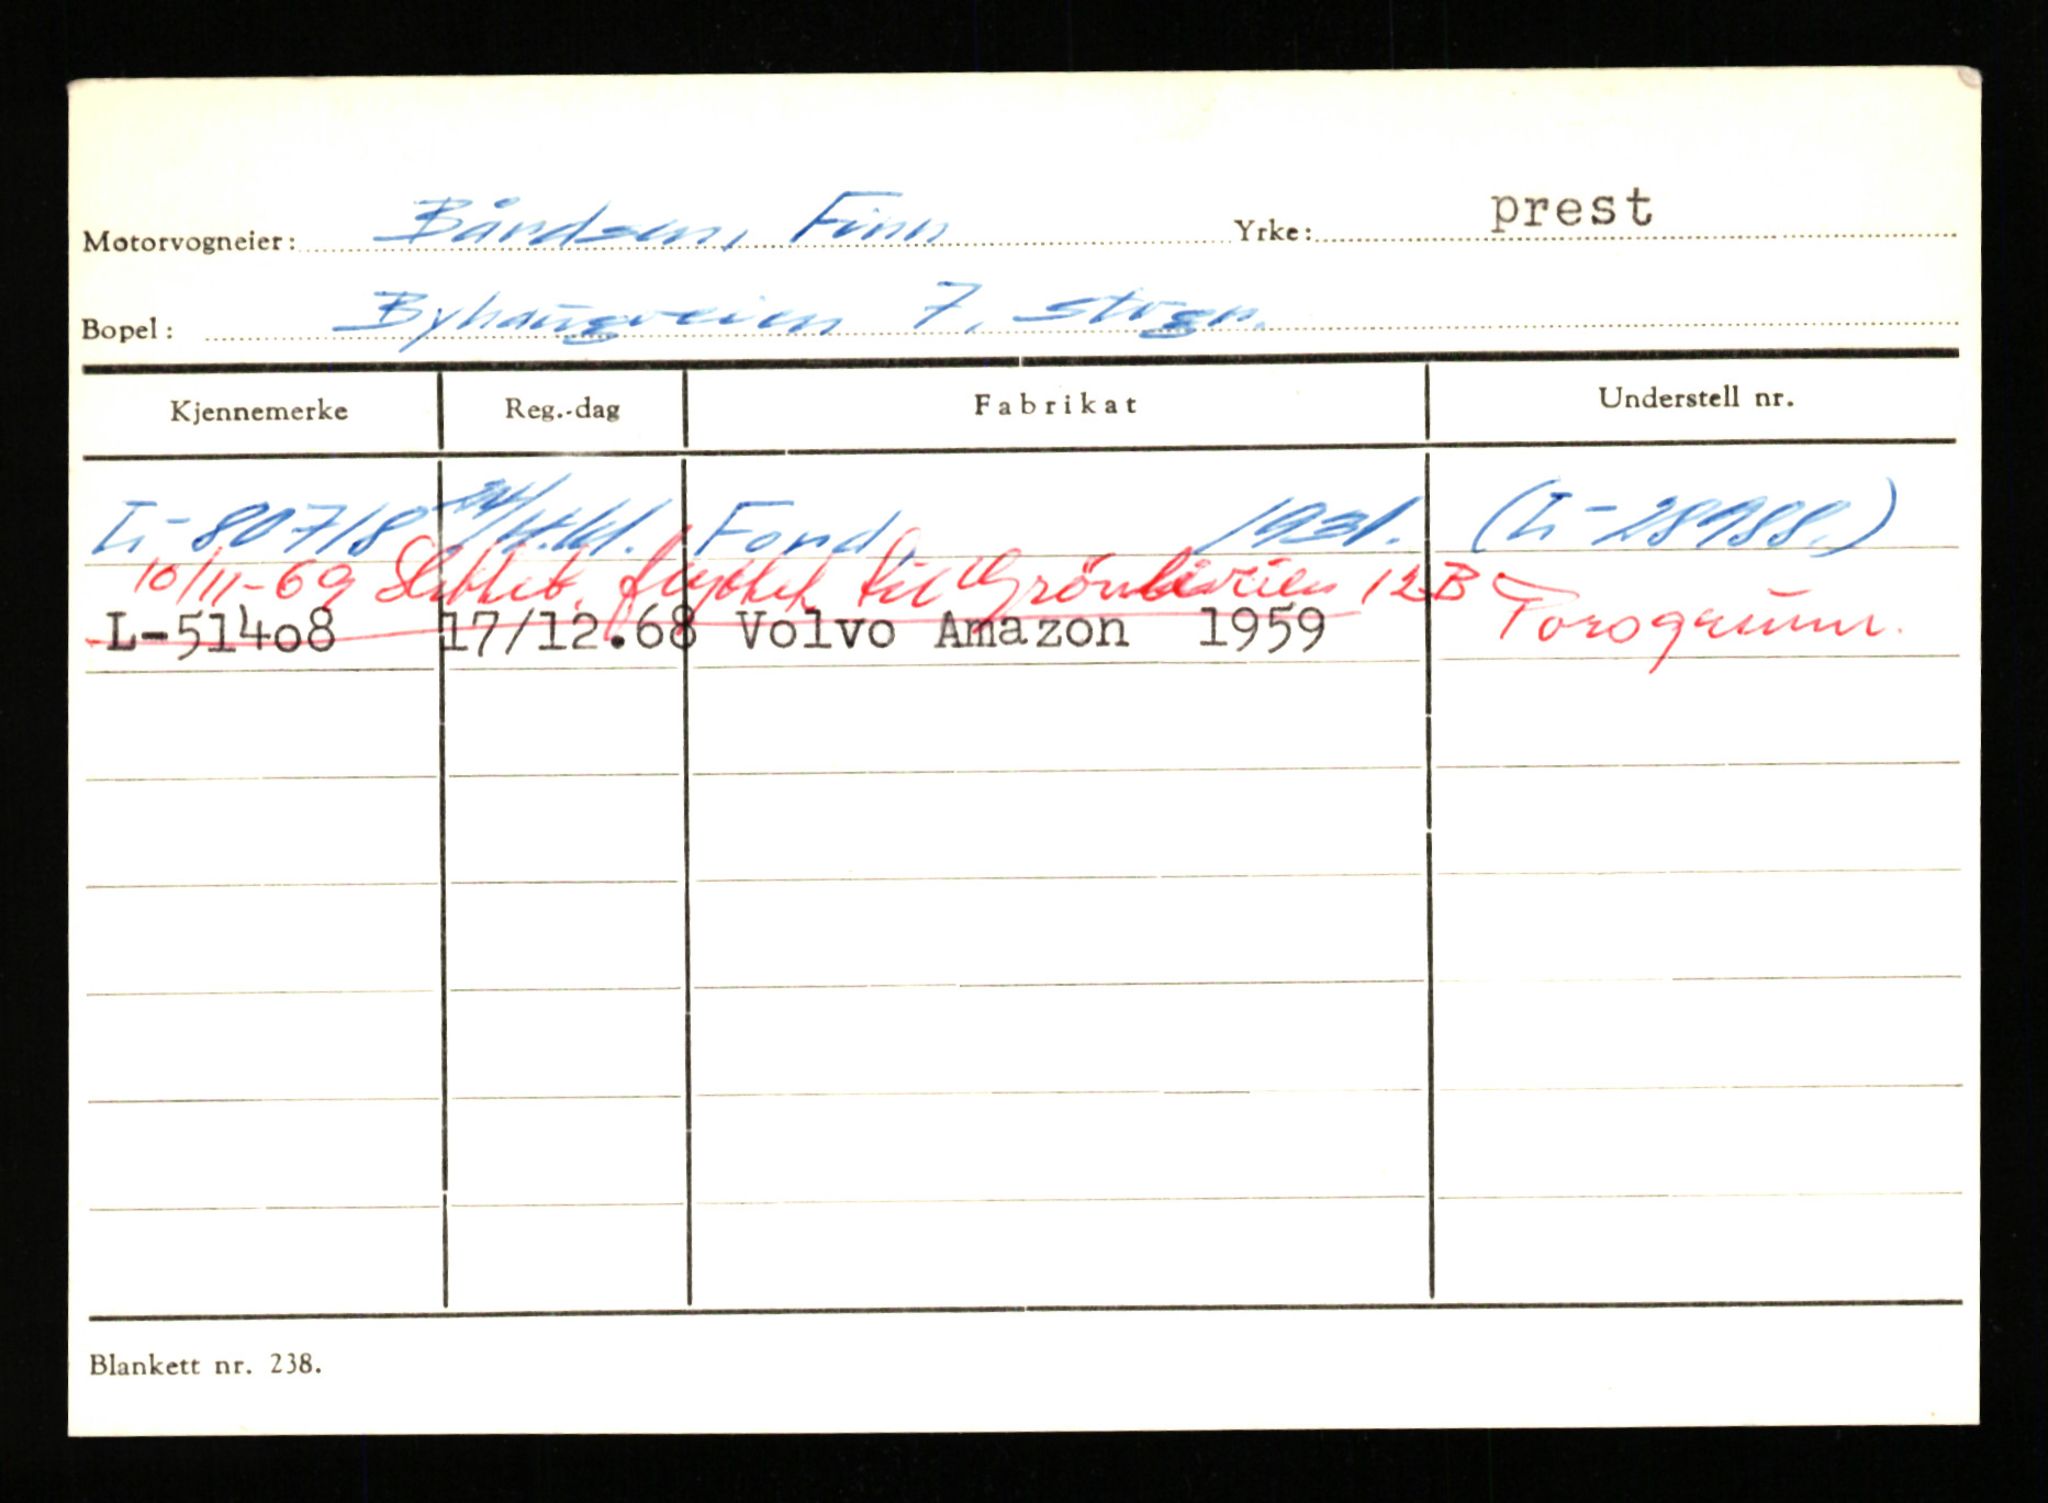 Motorvogneier: Bårdsen, Finn Yrke: prest
Bopel: Byhaugveien 7, Stvgr.
Kjennemerke Reg.-dag Fabrikat Understell nr.
L-80718 24/4.61. Ford 1931. (L-28988.)
10/11-69 Slettet, flyttet til Grönliveien 12B Porsgrunn.
L-51408 17/12.68 Volvo Amazon 1959
Blankett nr. 238.